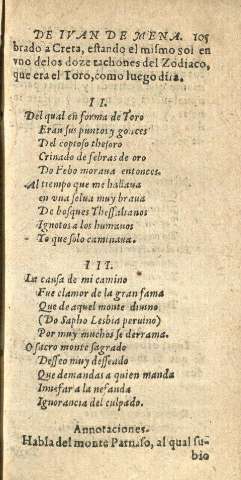 DE IVAN DE MENA. 105
brado a Creta, estando el mismo sol en
vno de los doze tachones del Zodiaco,
que era el Toro, como luego dira.
II.
Del qual en forma de Toro
Eran sus puntos y gonces
Del copioso thesoro
Crinado de febras de oro
Do Febo moraua entonces.
Al tiempo que me hallaua
en vna selua muy braua
De bosques Thessalianos
Ignotos a los humanos
Yo que solo caminaua.
III.
La causa de mi camino
Fue clamor de la gran fama
Que de aquel monte diuino
(Do Sapho Lesbia peruino)
Por muy muchos se derrama.
O sacro monte sagrado
Desseo muy desseado
Que demandas a quien manda
Inuesar a la nefanda
Ignorancia del culpado.
Annotaciones.
Habla del monte Parnaso, al qual su-
bio